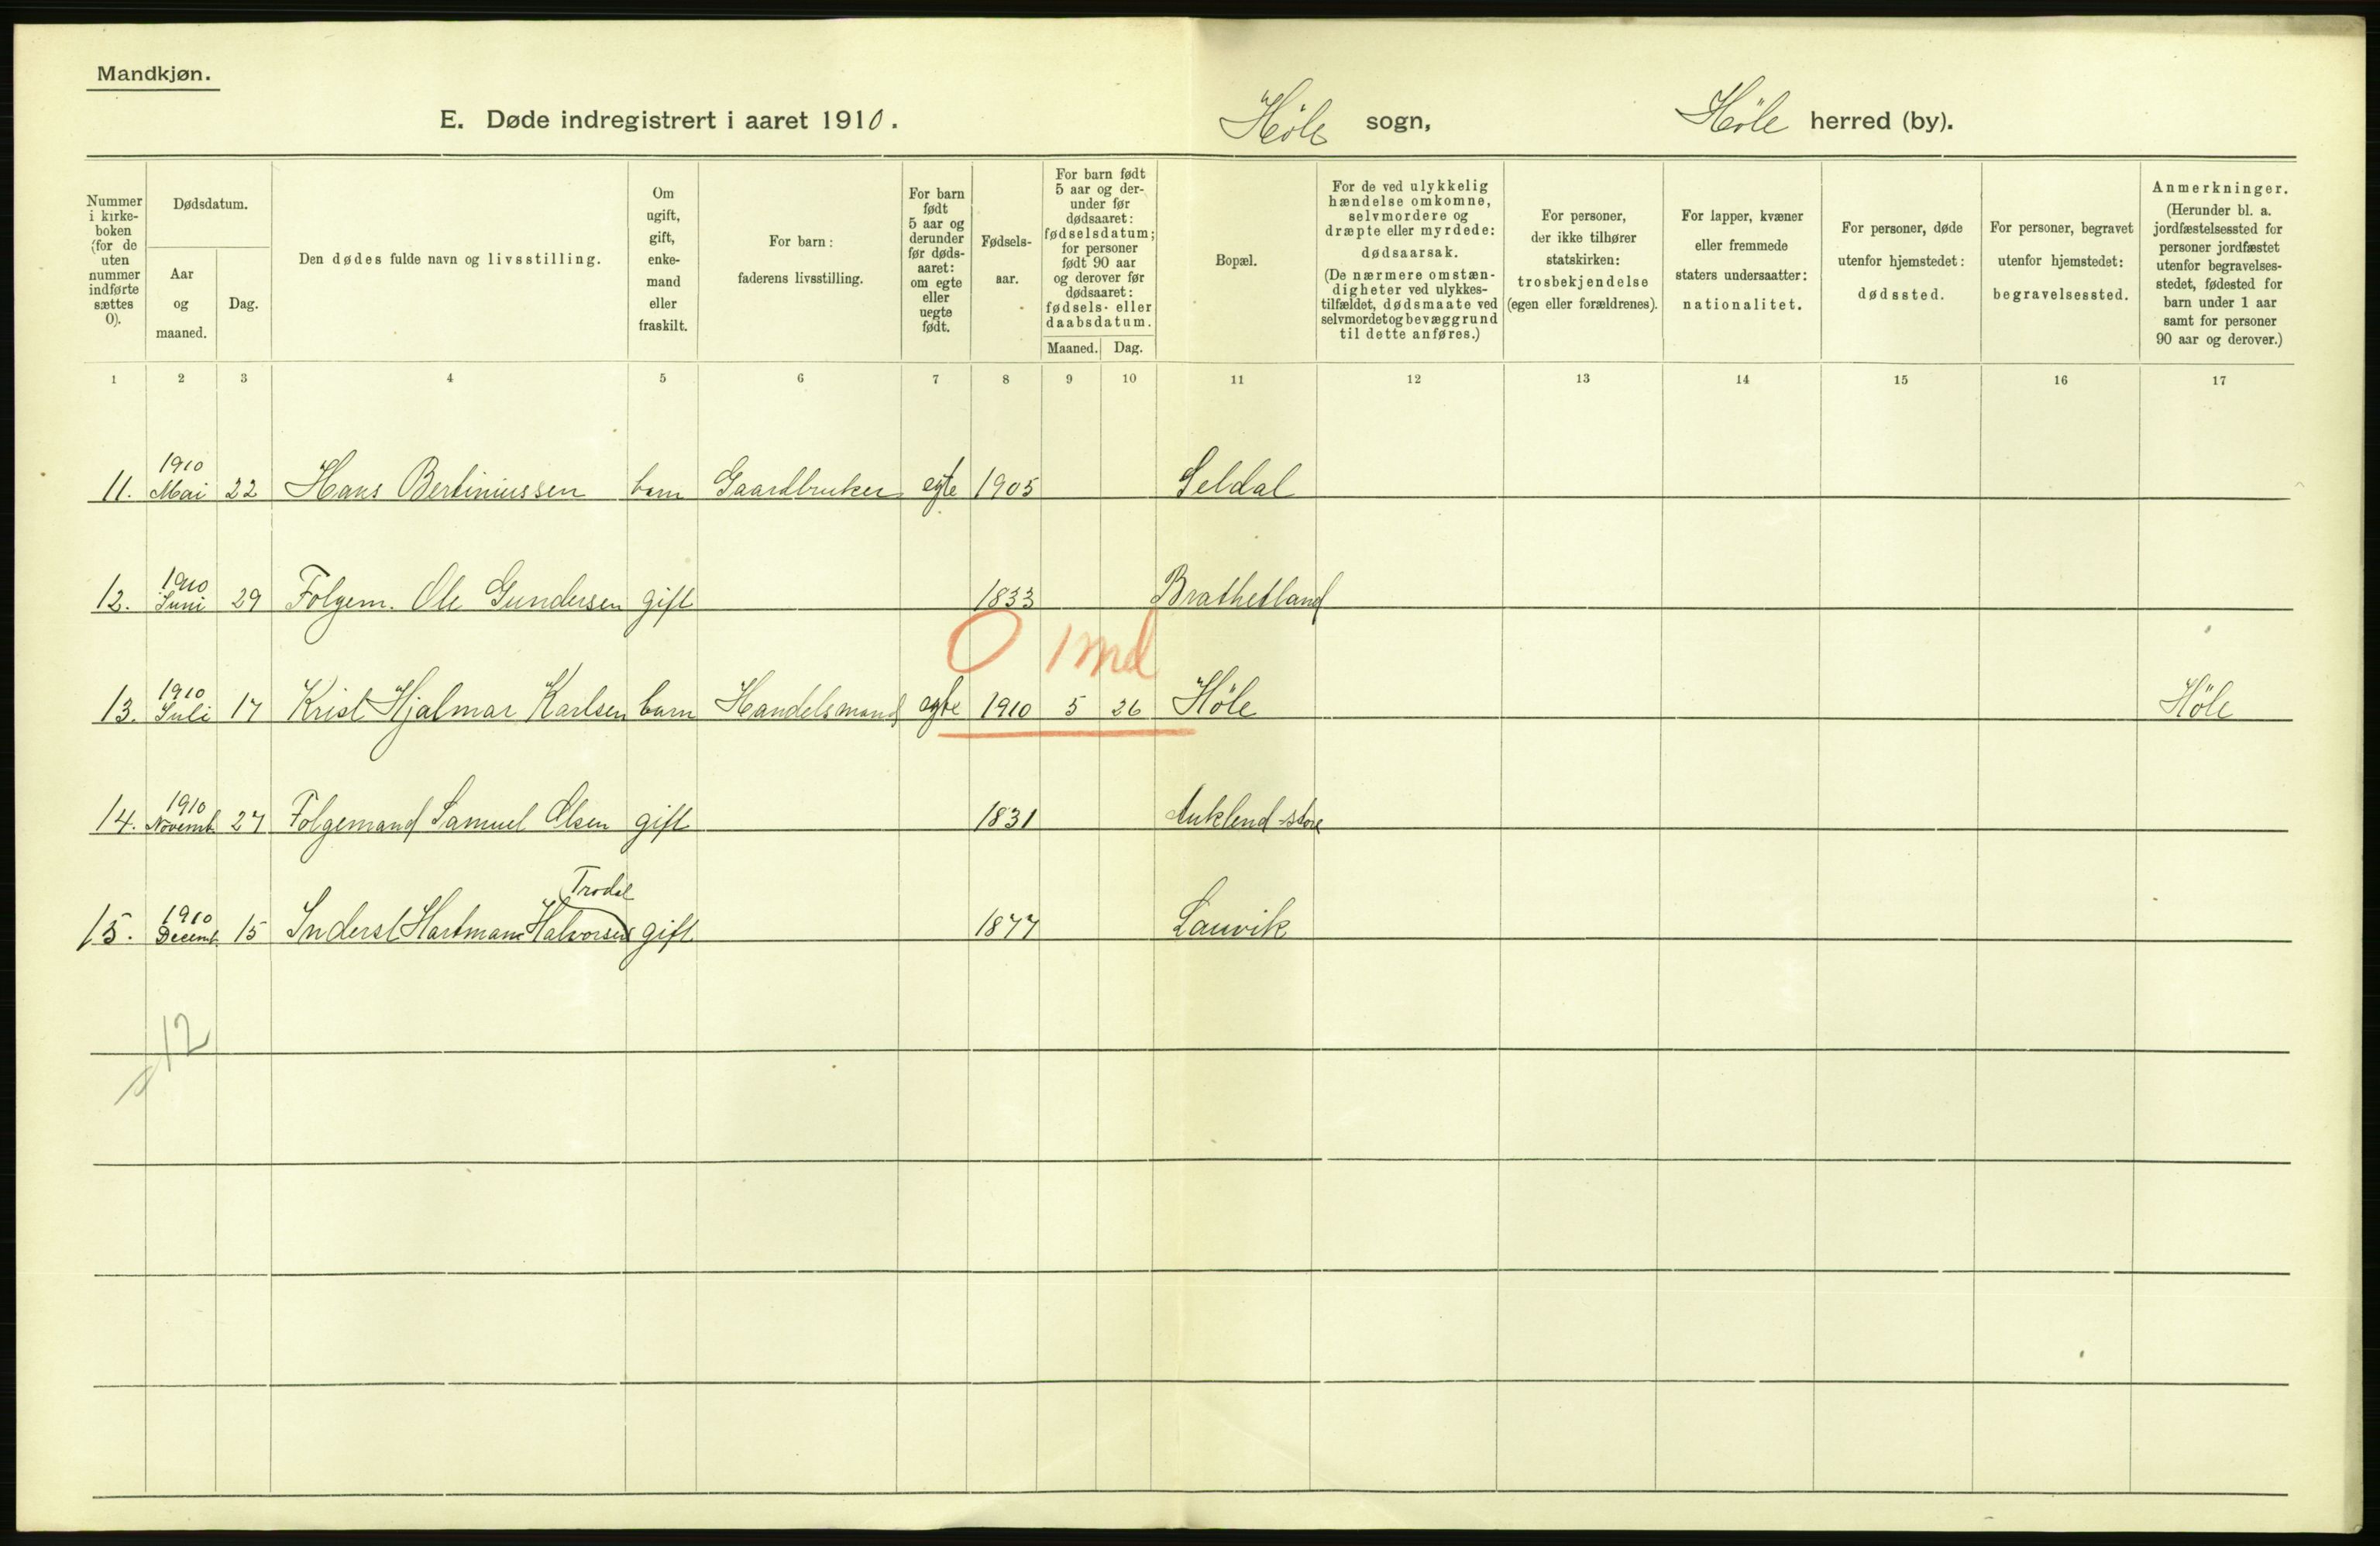 Mandkjøn.
E. Døde indregistrert i aaret 1910. Høle sogn, Høle herred (by).
Nummer i kirke-boken (for de uten nummer indførte sættes 0).
Dødsdatum.
Aar og maaned.
Dag.
Den dødes fulde navn og livsstilling.
Om ugift, gift, enke-mand eller fraskilt.
For barn: faderens livsstilling.
For barn født 5 aar og derunder før døds-aaret: om egte eller uegte født.
Fødsels-aar.
For barn født 5 aar og der-under før dødsaaret: fødselsdatum; for personer født 90 aar og derover før dødsaaret: fødsels- eller daabsdatum.
Maaned. Dag.
Bopæl.
For de ved ulykkelig hændelse omkomne, selvmordere og dræpte eller myrdede: dødsaarsak. (De nærmere omstæn-digheter ved ulykkes-tilfældet, dødsmaate ved selvmordet og bevæggrund til dette anføres.)
For personer, der ikke tilhører statskirken: trosbekjendelse (egen eller forældrenes).
For lapper, kvæner eller fremmede staters undersaatter: nationalitet.
For personer, døde utenfor hjemstedet: dødssted.
For personer, begravet utenfor hjemstedet: begravelsessted.
Anmerkninger. (Herunder bl. a. jordfæstelsessted for personer jordfæstet utenfor begravelses-stedet, fødested for barn under 1 aar samt for personer 90 aar og derover.)
1 2 3 4 5 6 7 8 9 10 11 12 13 14 15 16 17
11. 1910 Mai 22 Hans Bertiniussen barn Gaardbruker egte 1905 Seldal
12. 1910 Juni 29 Folgem. Ole Gundersen gift 1833 Brathetland
0 1 md
13. 1910 Juli 17 Krist Hjalmar Karlsen barn Handelsmand egte 1910 5 26 Høle Høle
14. 1910 Novemb. 27 Folgemand Samuel Olsen gift 1831 Auklend-store
Trodal
15. 1910 Decemb. 15 Inderst Hartman Halvorsen gift 1877 Lauvik
12